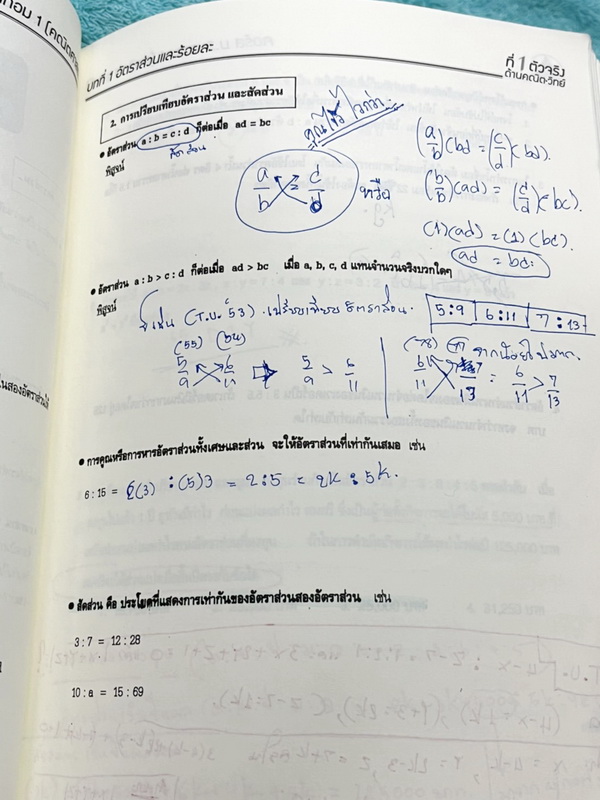 บทที่ 1 อัตราส่วนและร้อยละ
ที่ 1 ตัวจริง
ด้านคณิต-วิทย์
2. การเปรียบเทียบอัตราส่วน และสัดส่วน
• อัตราส่วน a : b = c : d ก็ต่อเมื่อ ad = bc
สัดส่วน
พิสูจน์
คูณไขว้ ไวกว่า
a/b = c/d
หรือ
(a/b)(bd) = (c/d)(bd).
(b/b)(ad) = (d/d)(bc).
(1)(ad) = (1)(bc).
• อัตราส่วน a : b > c : d ก็ต่อเมื่อ ad > bc เมื่อ a, b, c, d แทนจำนวนจริงบวกใดๆ
พิสูจน์
เช่น (T.U. 53) เปรียบเทียบอัตราส่วน. 5:9 6:11 7:13
(55) (54)
5/9 6/11 5/9 > 6/11
(78) (77) จากน้อยไปมาก
6/11 7/13 = 6/11 > 7/13
• การคูณหรือการหารอัตราส่วนทั้งเศษและส่วน จะให้อัตราส่วนที่เท่ากันเสมอ เช่น
6 : 15 = 2(3) : (5)3 = 2:5 = 2k : 5k.
• สัดส่วน คือ ประโยคที่แสดงการเท่ากันของอัตราส่วนสองอัตราส่วน เช่น
3 : 7 = 12 : 28
10 : a = 15 : 69